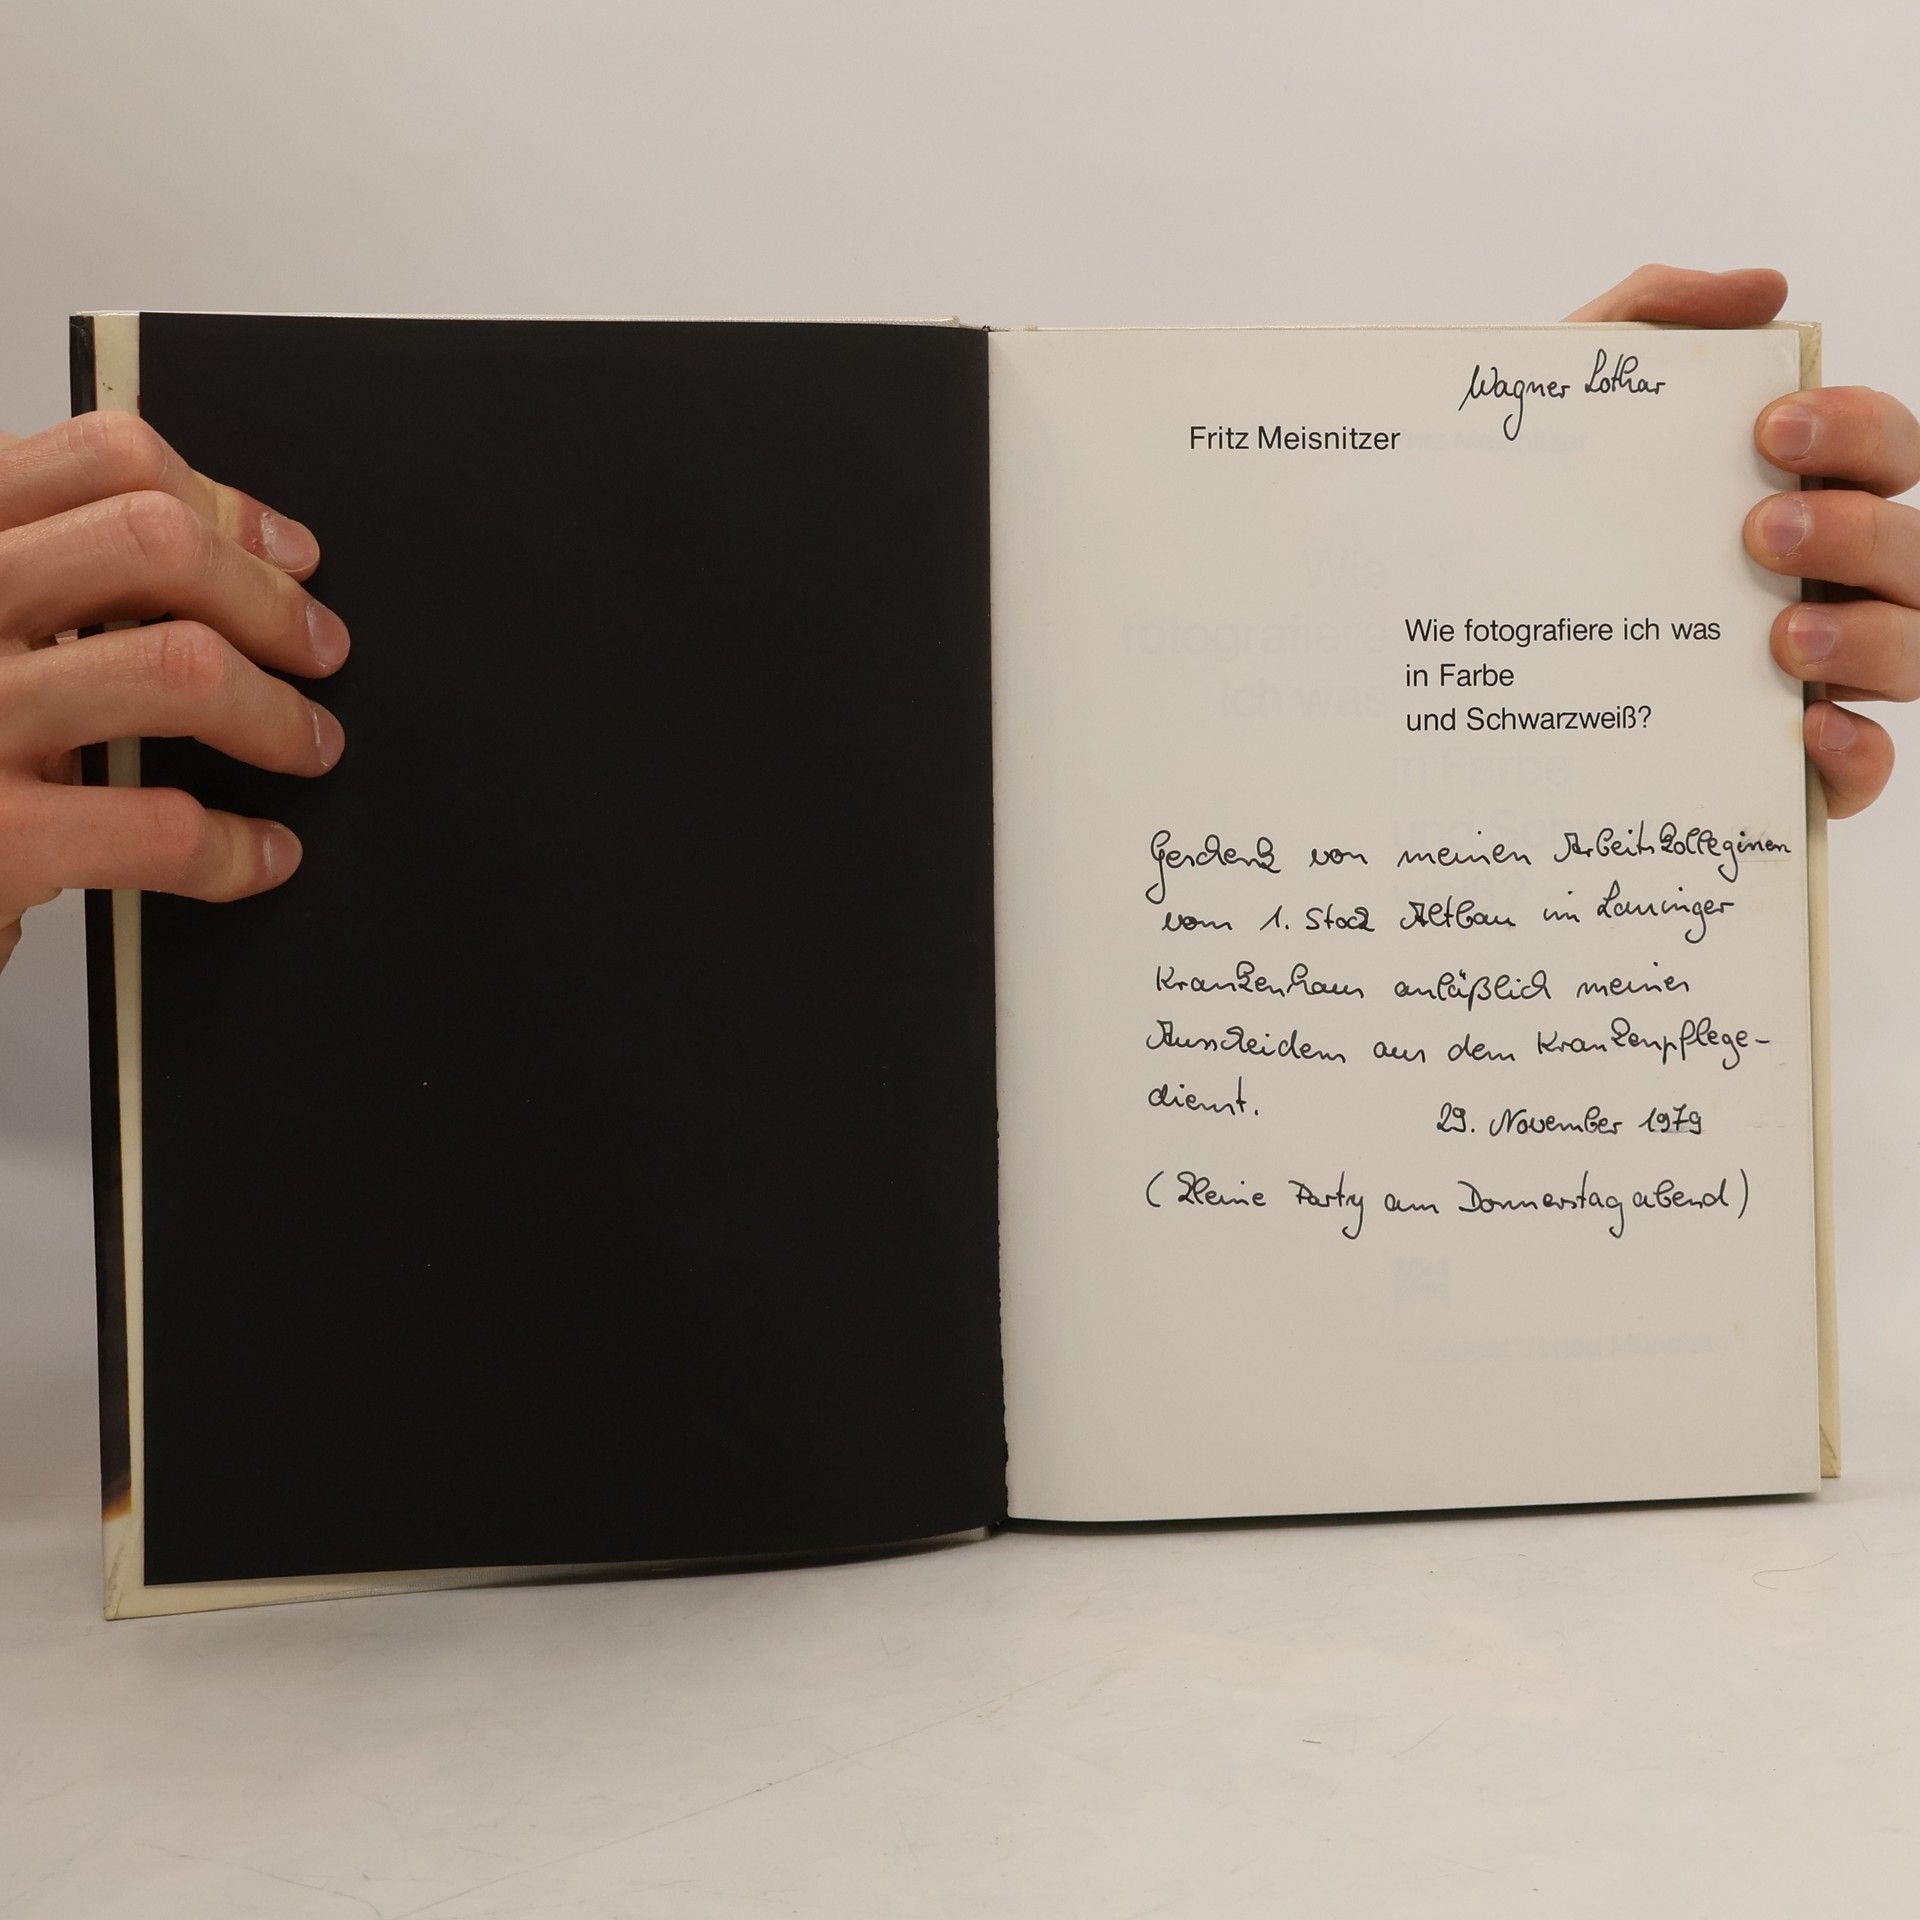 Wagner Lothar
Fritz Meisnitzer
Wie fotografiere ich was
in Farbe
und Schwarzweiß?
Geschenk von meinen Arbeitskolleginen
vom 1. Stock Altbau im Lauinger
Krankenhaus anläßlich meines
Ausscheidens aus dem Krankenpflege-
dienst.
29. November 1979
(kleine Party am Donnerstag abend)